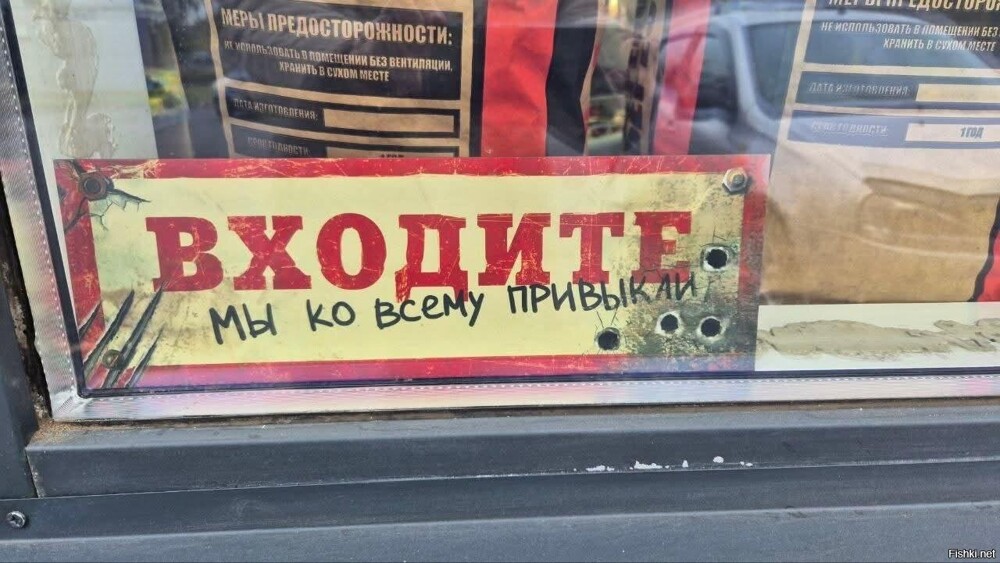 МЕРЫ ПРЕДОСТОРОЖНОСТИ:
НЕ ИСПОЛЬЗОВАТЬ В ПОМЕЩЕНИИ БЕЗ ВЕНТИЛЯЦИИ,
ХРАНИТЬ В СУХОМ МЕСТЕ
ДАТА ИЗГОТОВЛЕНИЯ:
СРОК ГОДНОСТИ 1 ГОД
МЕРЫ ПРЕДОСТОРОЖНОСТИ
НЕ ИСПОЛЬЗОВАТЬ В ПОМЕЩЕНИИ БЕЗ
ХРАНИТЬ В СУХОМ МЕСТЕ
ДАТА ИЗГОТОВЛЕНИЯ
СРОК ГОДНОСТИ 1 ГОД
ВХОДИТЕ
МЫ КО ВСЕМУ ПРИВЫКЛИ
Fishki.net